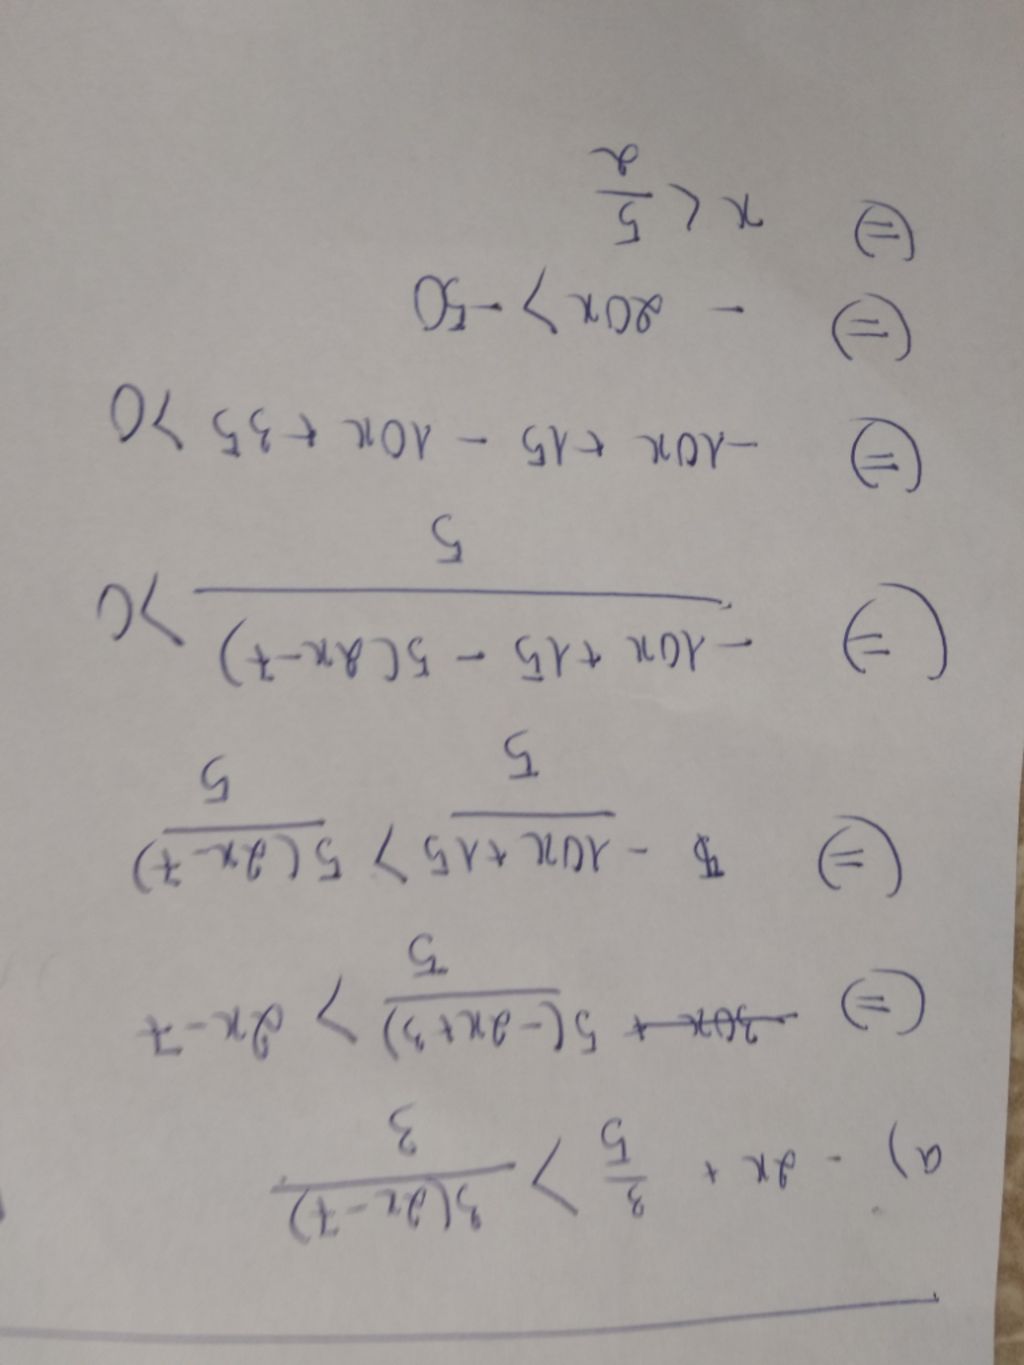 a) - 2x + 3/5 > 3(2x-7)/3
(=) 5(-2x+3)/5 > 2x-7
(=) -10x+15/5 > 5(2x-7)/5
(=) -10x+15 - 5(2x-7)/5 >0
(=) -10x +15 - 10x +35 >0
(=) - 20x > -50
(=) x < 5/2